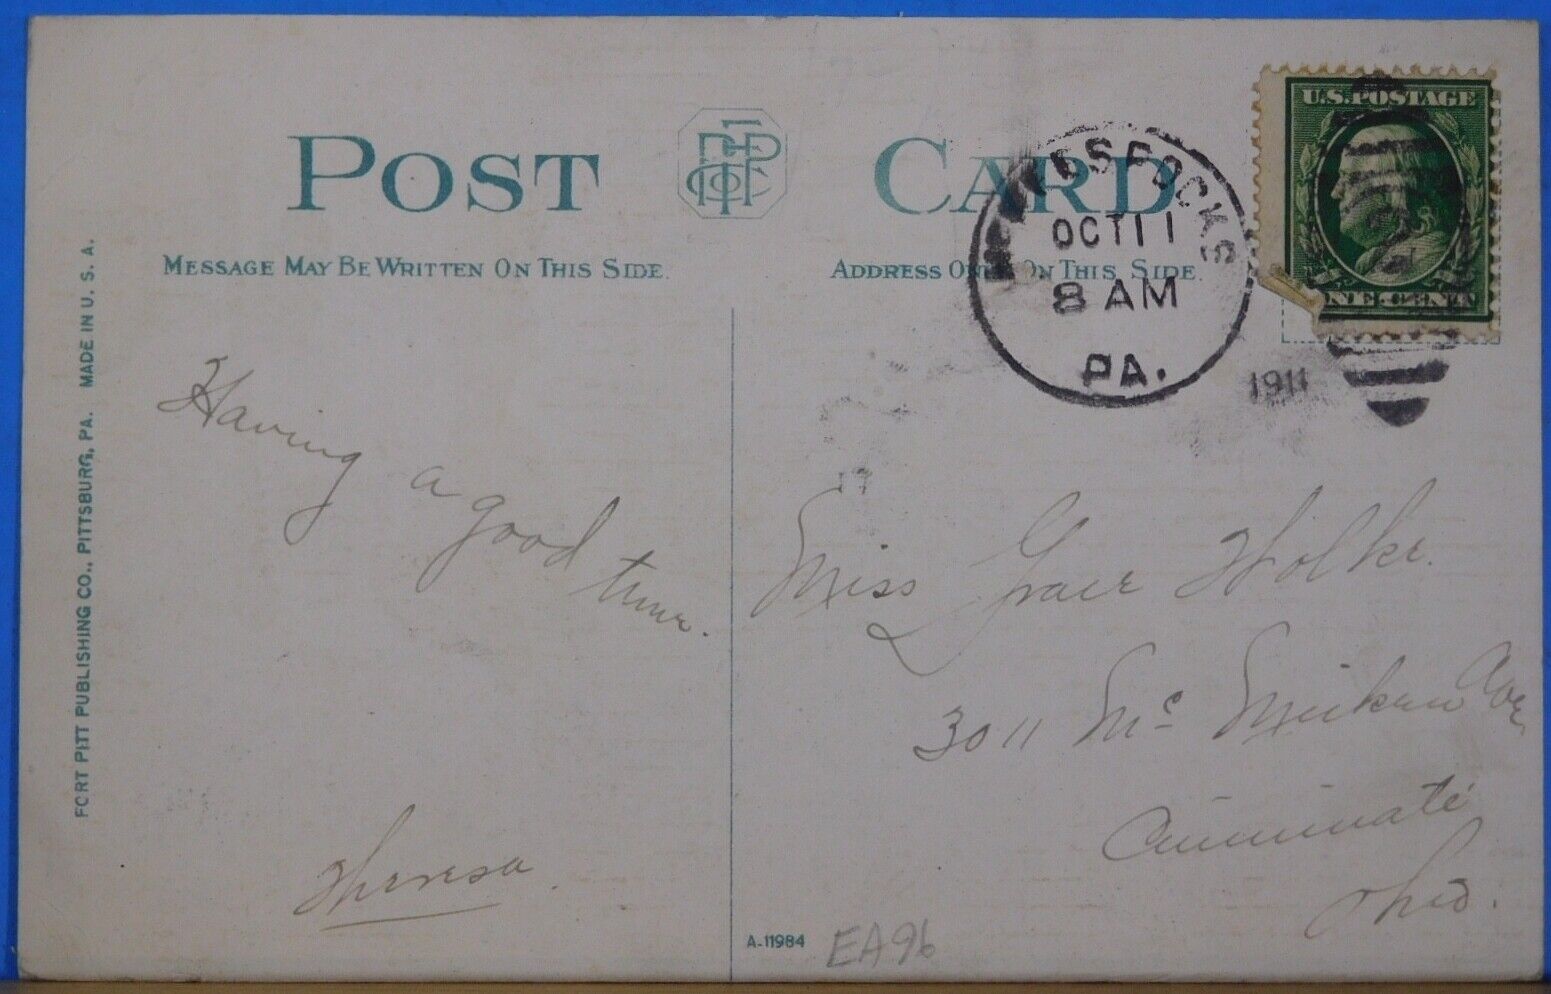 POST CARD
MESSAGE MAY BE WRITTEN ON THIS SIDE.
ADDRESS ONLY ON THIS SIDE.
U.S. POSTAGE
ONE CENT
MCKEES ROCKS
OCT 11
8 AM
PA.
1911
Having
a good
time.
Theresa
Miss Grace
3011 Mc Micken Ave
Cincinnati
Ohio.
FORT PITT PUBLISHING CO., PITTSBURG, PA. MADE IN U. S. A.
A-11984
EA96